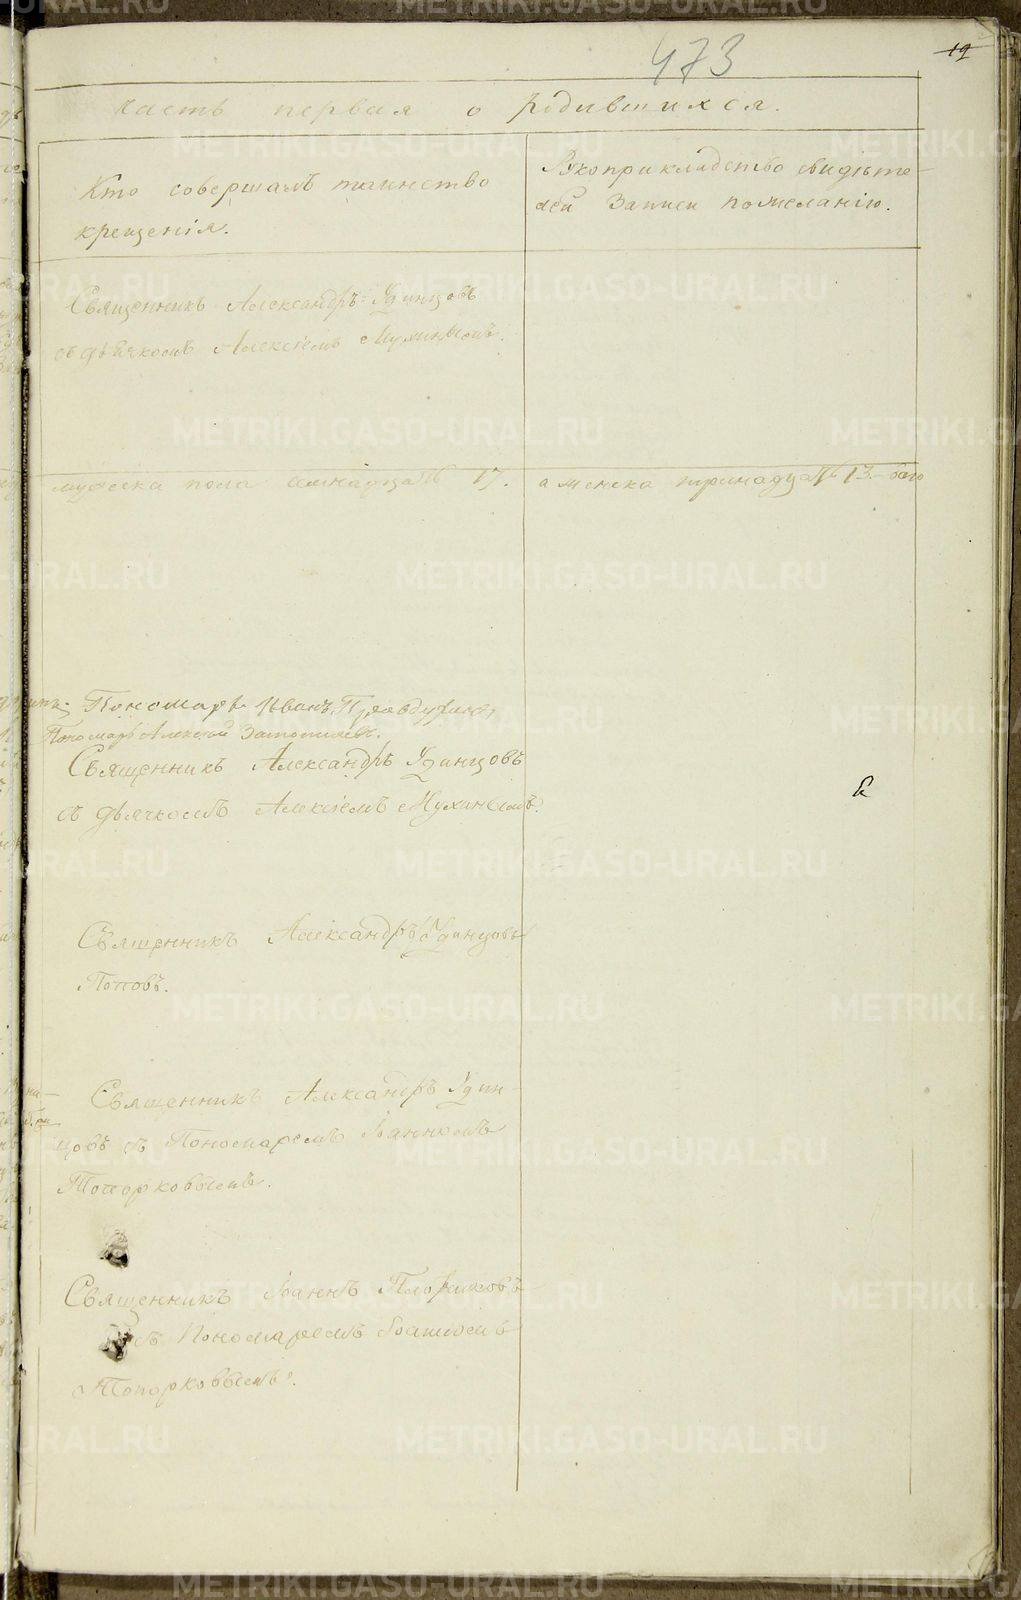 473
19
Часть первая о родившихся.
Кто совершалъ таинство
крещенія.
Рукоприкладство свидѣте-
лей записи по желанію.
Священникъ Александръ Удинцовъ
съ дьячкомъ Алексіемъ Мухинымъ.
мужеска пола семнадцать 17.
а женска тринадцать 13.
Пономарь Иванъ
Пономарь Алексѣй
Священникъ Александръ Удинцовъ
съ дьячкомъ Алексіемъ Мухинымъ.
Священникъ Александръ Удинцовъ
Поповъ.
Священникъ Александръ Удин-
цовъ съ Пономаремъ Іоанномъ
Топорковымъ.
Священникъ Іоаннъ
съ Пономаремъ Іоанномъ
Топорковымъ.
METRIKI.GASO-URAL.RU